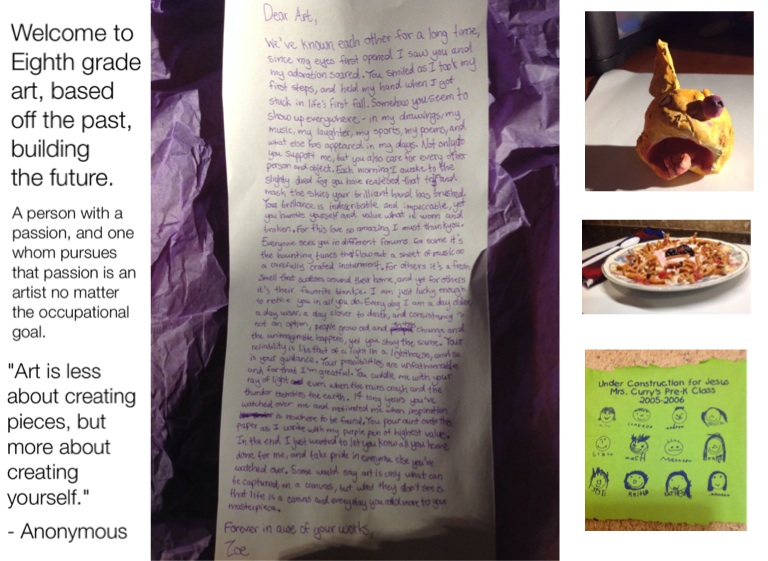 Welcome to
Eighth grade
art, based
off the past,
building
the future.
A person with a
passion, and one
whom pursues
that passion is an
artist no matter
the occupational
goal.
"Art is less
about creating
pieces, but
more about
creating
yourself."
- Anonymous
Dear Art,
We've known each other for a long time,
since my eyes first opened I saw you and
my adoration soared. You smiled as I took my
first steps, and held my hand when I got
stuck in life's first fall. Somehow you seem to
show up everywhere,- in my drawings, my
music, my laughter, my sports, my poems, and
what else has appeared in my days. Not only do
you support me, but you also care for every other
person and object. Each morning I awake to the
slightly dued fog you have
mask the skies your brilliant hand has brushed.
Your brilliance is and impeccable, yet
you yourself and value what is worn and
broken. For this love so amazing I must thank you.
Everyone sees you in different forums. For some it's
the haunting tunes that flow out a sheet of music or
a carefully crafted insturment. For others it's a fresh
smell that wafts around their home, and yet for others
it's their favorite blankie. I am just lucky enough
to notice you in all you do. Every day I am a day older,
a day wiser, a day closer to death, and consistency is
not an option, people grow old and change, and
the unimaginable happens, yet you stay the same. Your
reliability is like that of a light in a lighthouse, and so
is your guidance. Your possibilities are unfathomable
and for that I'm greatful. You cuddle me with your
ray of light even when the rain crash and the
thunder rumbles the earth. 14 long years you've
watched over me and motivated me when inspiration
is nowhere to be found. You pour out onto the
paper as I write with my purple pen of highest value.
In the end I just wanted to let you know all you have
done for me, and take pride in everyone else you've
watched over. Some would say art is only what can
be captured on a canvas, but what they don't see is
that life is a canvas and everyday you add more to your
masterpiece.
Forever in awe of your works,
Zoe
Under Construction for Jesus
Mrs. Curry's Pre-K Class
2005-2006